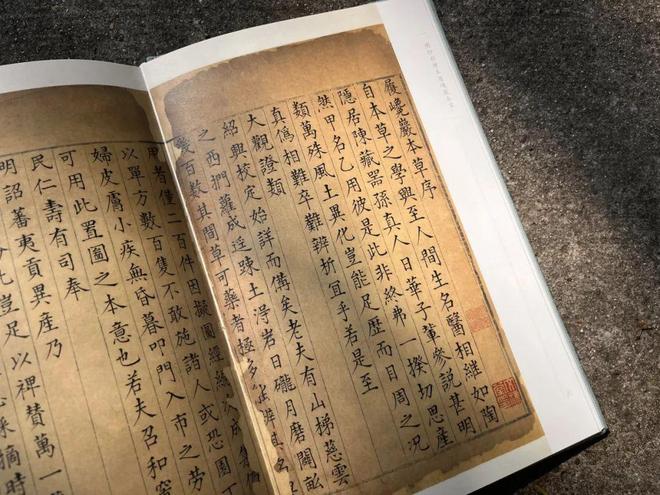 履巉巖本草序
自本草之學興至人間生名醫相繼如陶
隱居陳藏器孫真人日華子輩參説甚明
然甲名乙用彼是此非終弗一揆切思產
類萬殊風土異化豈能足歷而目周之況
真僞相難卒難辨析宜乎若是至
大觀證類
紹興校定始詳而備矣老夫有山梯慈雲
之西捫蘿成逕踈土得岩日礲月磨闢畝
幾百數其間草可藥者極多
用者僅二百件因擬圖經編次成集
以單方數百隻不敢施諸人或恐園丁
婦皮膚小疾無昏暮叩門入市之勞
可用此置圖之本意也若夫召和
民仁壽有司奉
明詔蕃夷貢異產乃
此豈足以裨贊萬一
采摘時